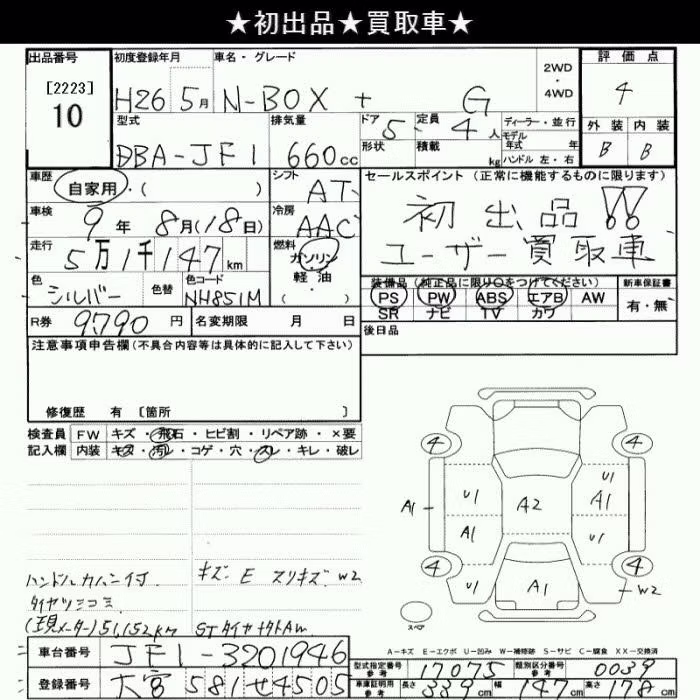 ★初出品★買取車★
出品番号
[2223]
10
初度登録年月
H26 5月
車名・グレード
N-BOX + G
2WD
・
4WD
評価点
4
外装 内装
B B
型式
DBA-JF1
排気量
660cc
ドア 5
形状
定員 4人
積載 kg
ディーラー・並行
モデル
年式 年
ハンドル 左・右
車歴
自家用・( )
シフト
AT
セールスポイント(正常に機能するものに限ります)
初出品!!
ユーザー買取車
車検
9年 8月(18日)
冷房
AAC
走行
5万1千147km
燃料
ガソリン
軽・油
( )
色
シルバー
色替
色コード
NH851M
装備品(純正品に限り○をつけてください)
PS PW ABS エアB AW
SR ナビ TV カワ
新車保証書
有・無
R券 9790円
名変期限 月 日
後日品
注意事項申告欄(不具合内容等は具体的に記入して下さい)
修復歴 有 [箇所 ]
検査員 FW キズ・飛石・ヒビ割・リペア跡・×要
記入欄 内装 キズ・汚レ・コゲ・穴・スレ・キレ・破レ
ハンドルカバー付
タイヤツミコミ
(現メーター)51,152km
キズ E スリキズ W2
STタイヤナタトAW
4 4
U1
U1 A2 A1
A1 A1 U1
4 4
U1 A1 U1 W2
スペア
A-キズ E-エクボ U-凹み W-補修跡 S-サビ C-腐食 XX-交換済
車台番号 JF1-3201946
登録番号 大宮581せ4505
型式指定番号
参考 17075
類別区分番号
参考 0039
車庫証明用
参考
長さ 339cm 幅 147cm 高さ 178cm